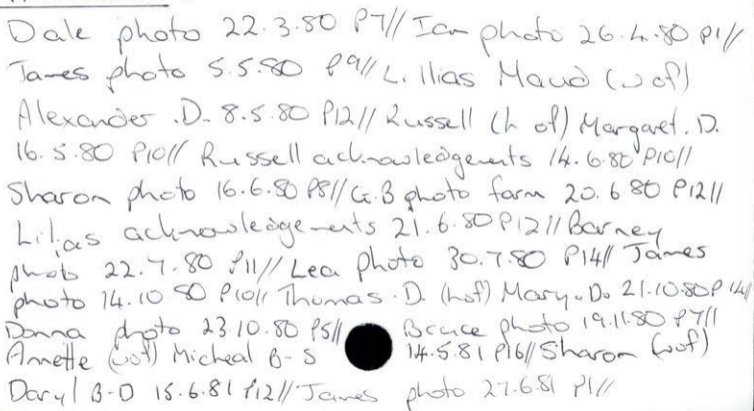 Dale photo 22.3.80 P7// Ian photo 26.4.80 P1//
James photo 5.5.80 P9// L. Ilias Maud (w of)
Alexander .D. 8.5.80 P12// Russell (h of) Margaret. D.
16.5.80 P10// Russell acknowledgements 14.6.80 P10//
Sharon photo 16.6.80 P8// G.B photo farm 20.6 80 P12//
Lilias acknowledgements 21.6.80 P12// Barney
photo 22.7.80 P11// Lea photo 30.7.80 P14// James
photo 14.10 80 P10// Thomas .D. (h of) Mary. D. 21.10.80 P14//
Donna photo 23.10.80 P5// Bruce photo 19.11.80 P7//
Annette (w of) Micheal B-S 14.5.81 P16// Sharon (w of)
Daryl B-D 15.6.81 P12// James photo 27.6.81 P1//